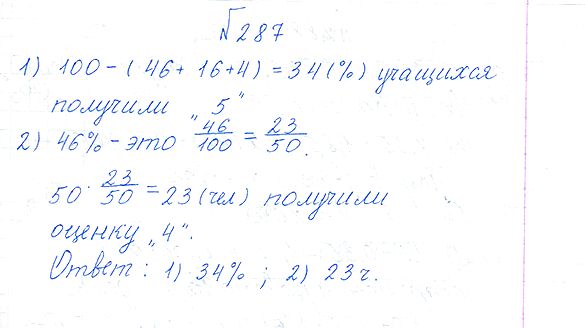 №287
1) 100 - (46 + 16 + 4) = 34 (%) учащихся
получили "5"
2) 46% - это 46/100 = 23/50.
50 · 23/50 = 23 (чел) получили
оценку „4".
Ответ: 1) 34% ; 2) 23 ч.